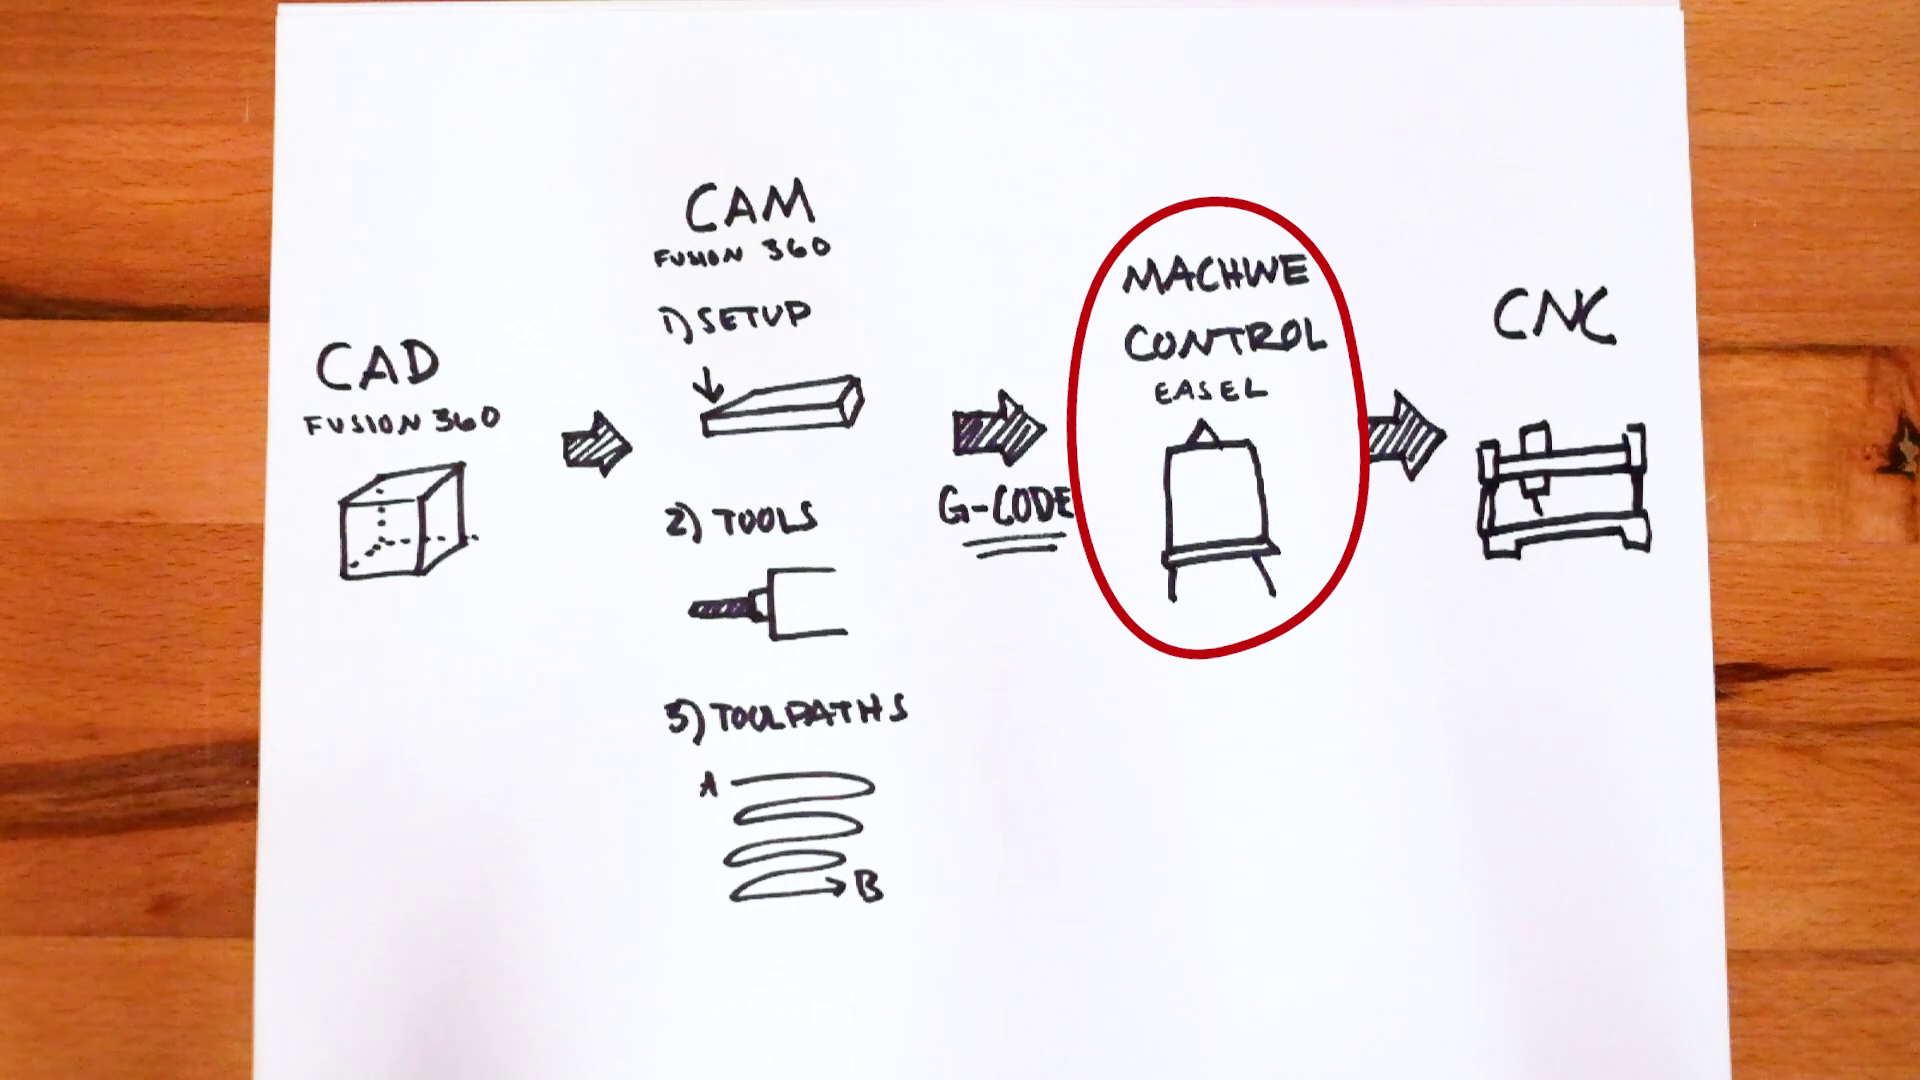 CAD
FUSION 360
CAM
FUSION 360
1) SETUP
2) TOOLS
3) TOOLPATHS
A
B
G-CODE
MACHINE
CONTROL
EASEL
CNC